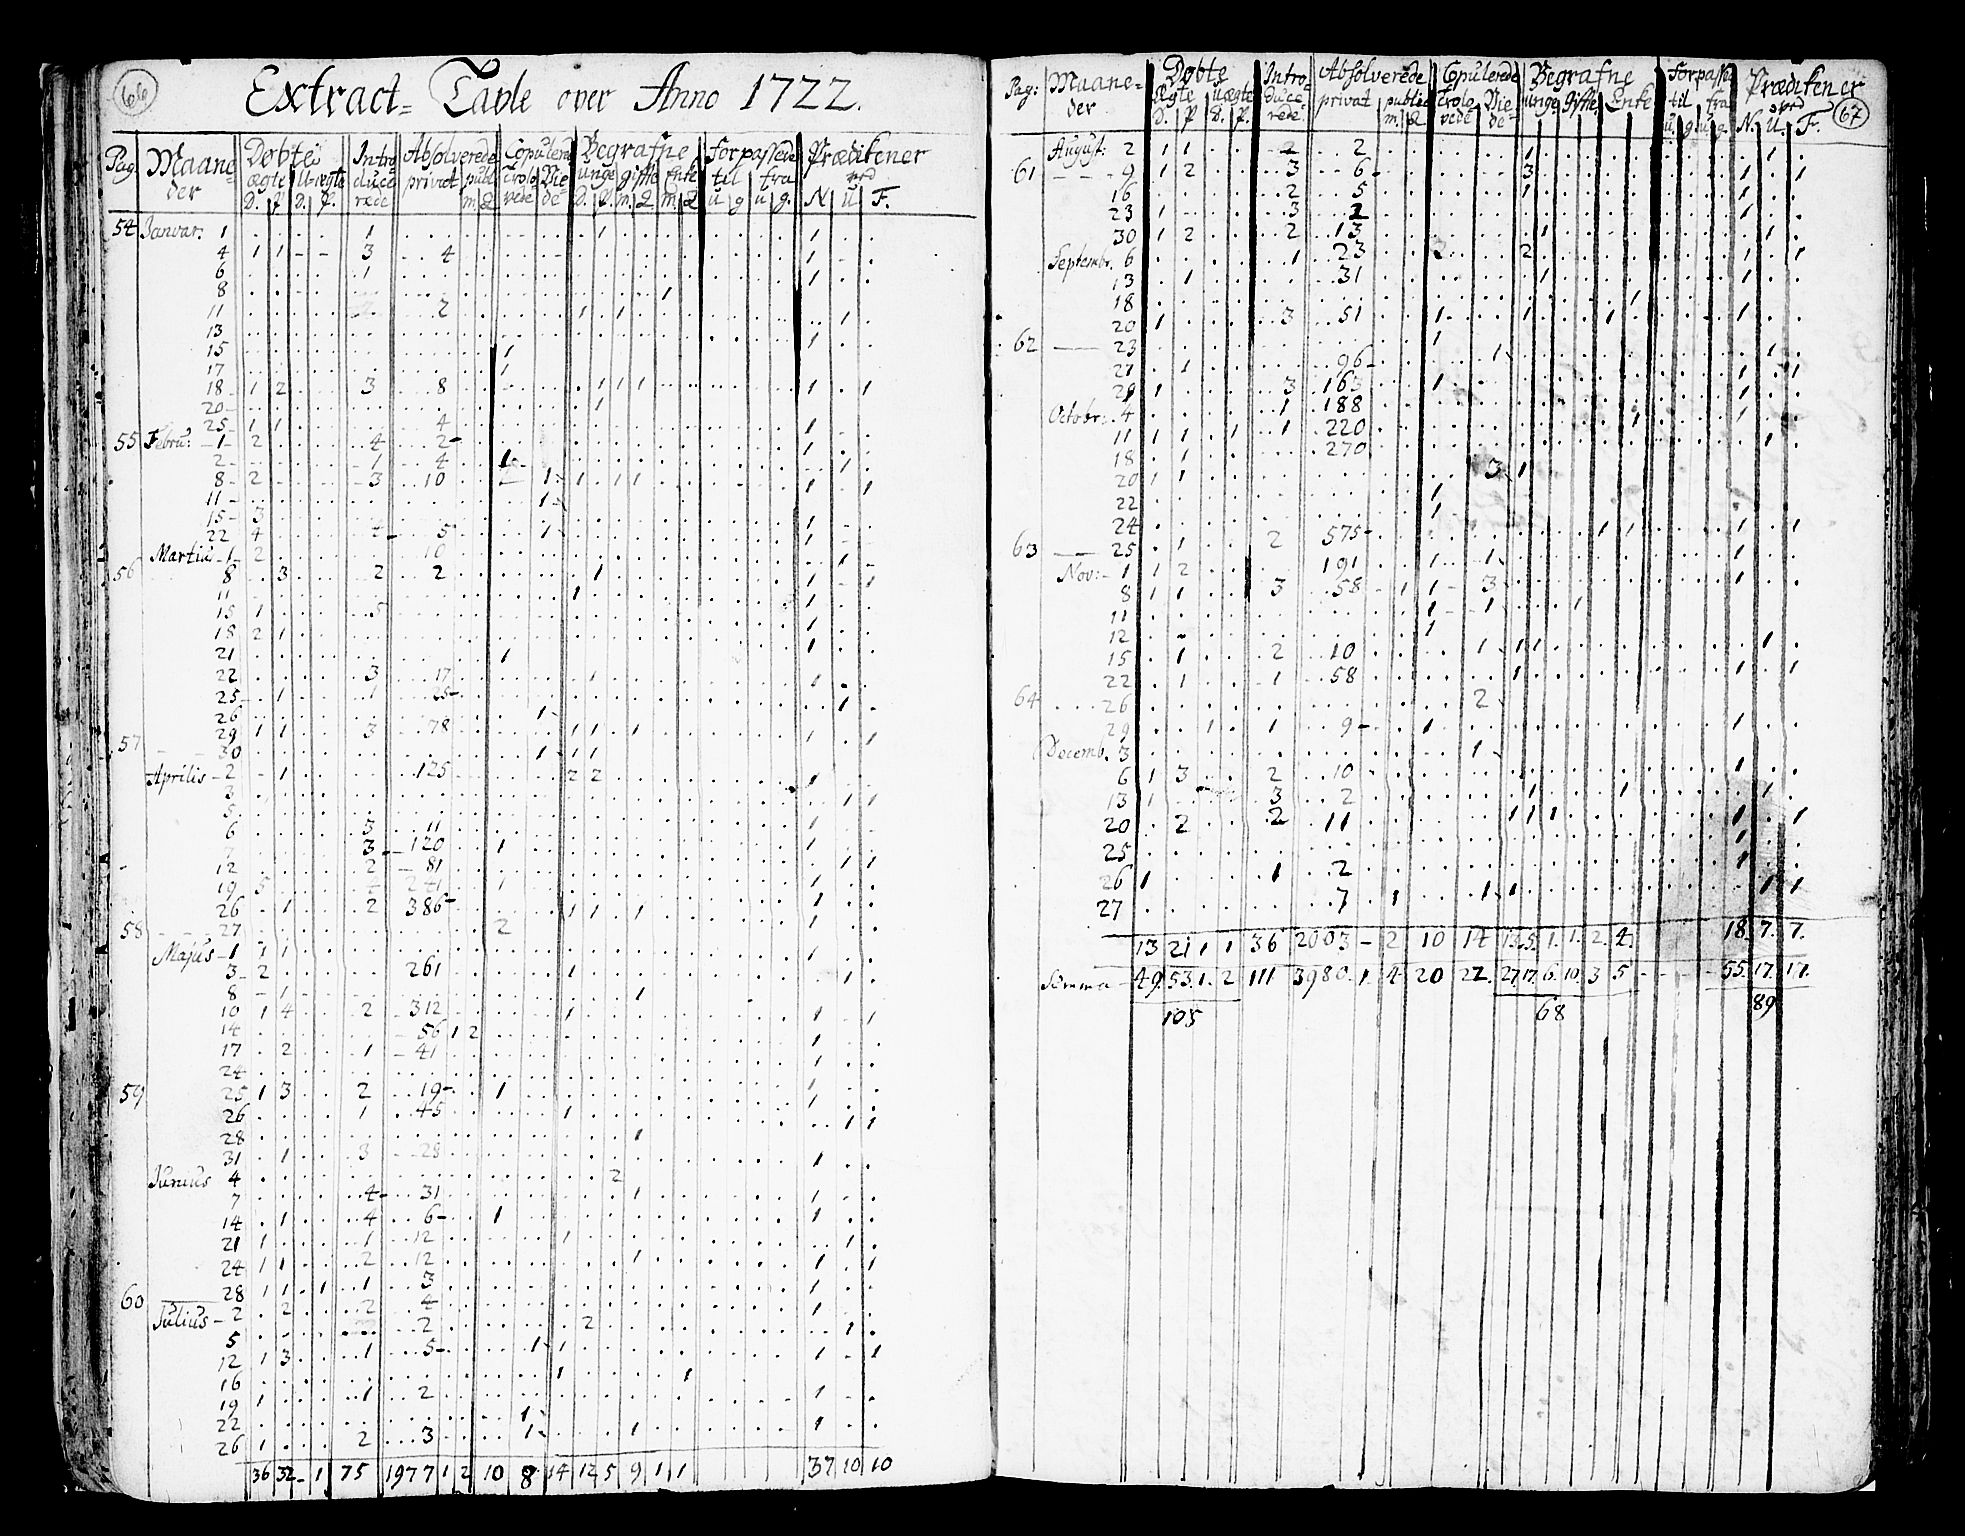 66
Extract= Tavle over Anno 1722.
Pag. Maane= Døbte Intro Absolverede Copulere Begrafne Forpassede Prædikener
der ægte U-ægte duce privat publ: Trolo Vie unge gifte Enke til fra
D. P. D. P. rede m. Q vede de D. P. m. Q m. Q u g u g. N U F.
54 Januar. 1 1 1 1
4 1 1 - - 3 4 1
6 1 1
8 1
11 2 1 1 1
13 1
15 1
17 1
18 1 2 3 8 1 1 1 1 1
20 1
25 1 1 4 1
55 Febru: 1 2 4 2 1
2 1 4 1 1
8 2 3 10 1 1 1 1 1 1
11 1
15 3 1
22 4 5 1 1
Martius 1 2 10 1
56 8 3 2 2 1 1 1
11 1 1
15 1 5 1
18 2 1 1
21 1
22 3 17 1 1
25 1 1 25 1
26 1
29 1 1 3 78 1 1 1 1 1
57 30 1 1 1
Aprilis 2 1 125 2 2 1
3 1 1
5
6 3 11 1
7 3 120 1 1
12 2 81 1 1
19 5 241 1 1
26 1 2 386 1 1 1 1
58 27 2
Majus 1 1 1 1
3 2 261 1 1
8 1 1
10 1 4 2 312 1 1 1
14 56 1 2 1
17 2 1 41 1
24 1
59 25 1 3 2 19 1 1
26 1 45 1 1 1
28 1
31 1 3 28 1
Junius 4 2
7 4 31 1 1
14 1 4 6 1 1
21 1 1 12 1 1
24 1 1 2 12 1 1 1
28 1 1 1 1 3 1
60 Julius 2 2 2 4 1
5 2 2 1
12 1 3 1 5 1 1 1 1
16 1 1
19 1 1 2 1
22 1
26 1 2 3 1 1 1
36 32 - 1 75 1977 1 2 10 8 14 12 5 9 1 1 37 10 10
Pag: Maane= Døbte Intro Absolverede Copulerede Begrafne Forpasse Prædikener
der ægte Uægte duce privat public Trolo Vie unge gifte Enke til fra
D. P. D. P. rede m. Q vede de u. g u g. N. U. F.
67
August: 2 1 1 2 2 1 1
61 9 1 2 3 6 3 1 1
16 2 5 1 1
23 1 3 2 1
30 1 2 2 13 1 1
Septembr. 6 1 23 2 1 1
13 1 31 1 1
18 1
20 1 3 51 1 1 1 1
62 23 1
27 1 96 1 1
29 1 3 163 1 1 1
Octobr: 4 1 188 1
11 1 1 1 1 220 1 1
18 1 270 1
20 1 1 3 1
22 1
24 1
63 25 1 2 575 1 1 1 1
Nov: 1 1 2 191 1 1 1
8 1 1 3 58 1 1 3 1
11 1 1 1
12 1
15 1 2 10 1 1 1 1
22 1 1 58 1 1 1
64 26 2
29 1 1 9 1 1
Decemb. 3 1
6 1 3 2 10 1
13 1 3 2 1 1 1
20 2 2 11 1 1 1 1 1
25 1
26 1 1 2 1
27 7 1 1 1 1 1
13 21 1 1 36 2003 - 2 10 14 13. 5. 1. 1. 2. 4. 18. 7. 7.
Summa 49. 53. 1. 2 111 3980. 1. 4 20 22. 27 17. 6. 10. 3 5 - - - - 55. 17. 17.
105 68 89